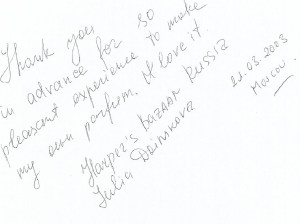 Thank you
in advance for so
pleasent experience to make
my own parfum. I love it
Harper's Bazaar Russia
Julia
21.03.2003
Moscow.